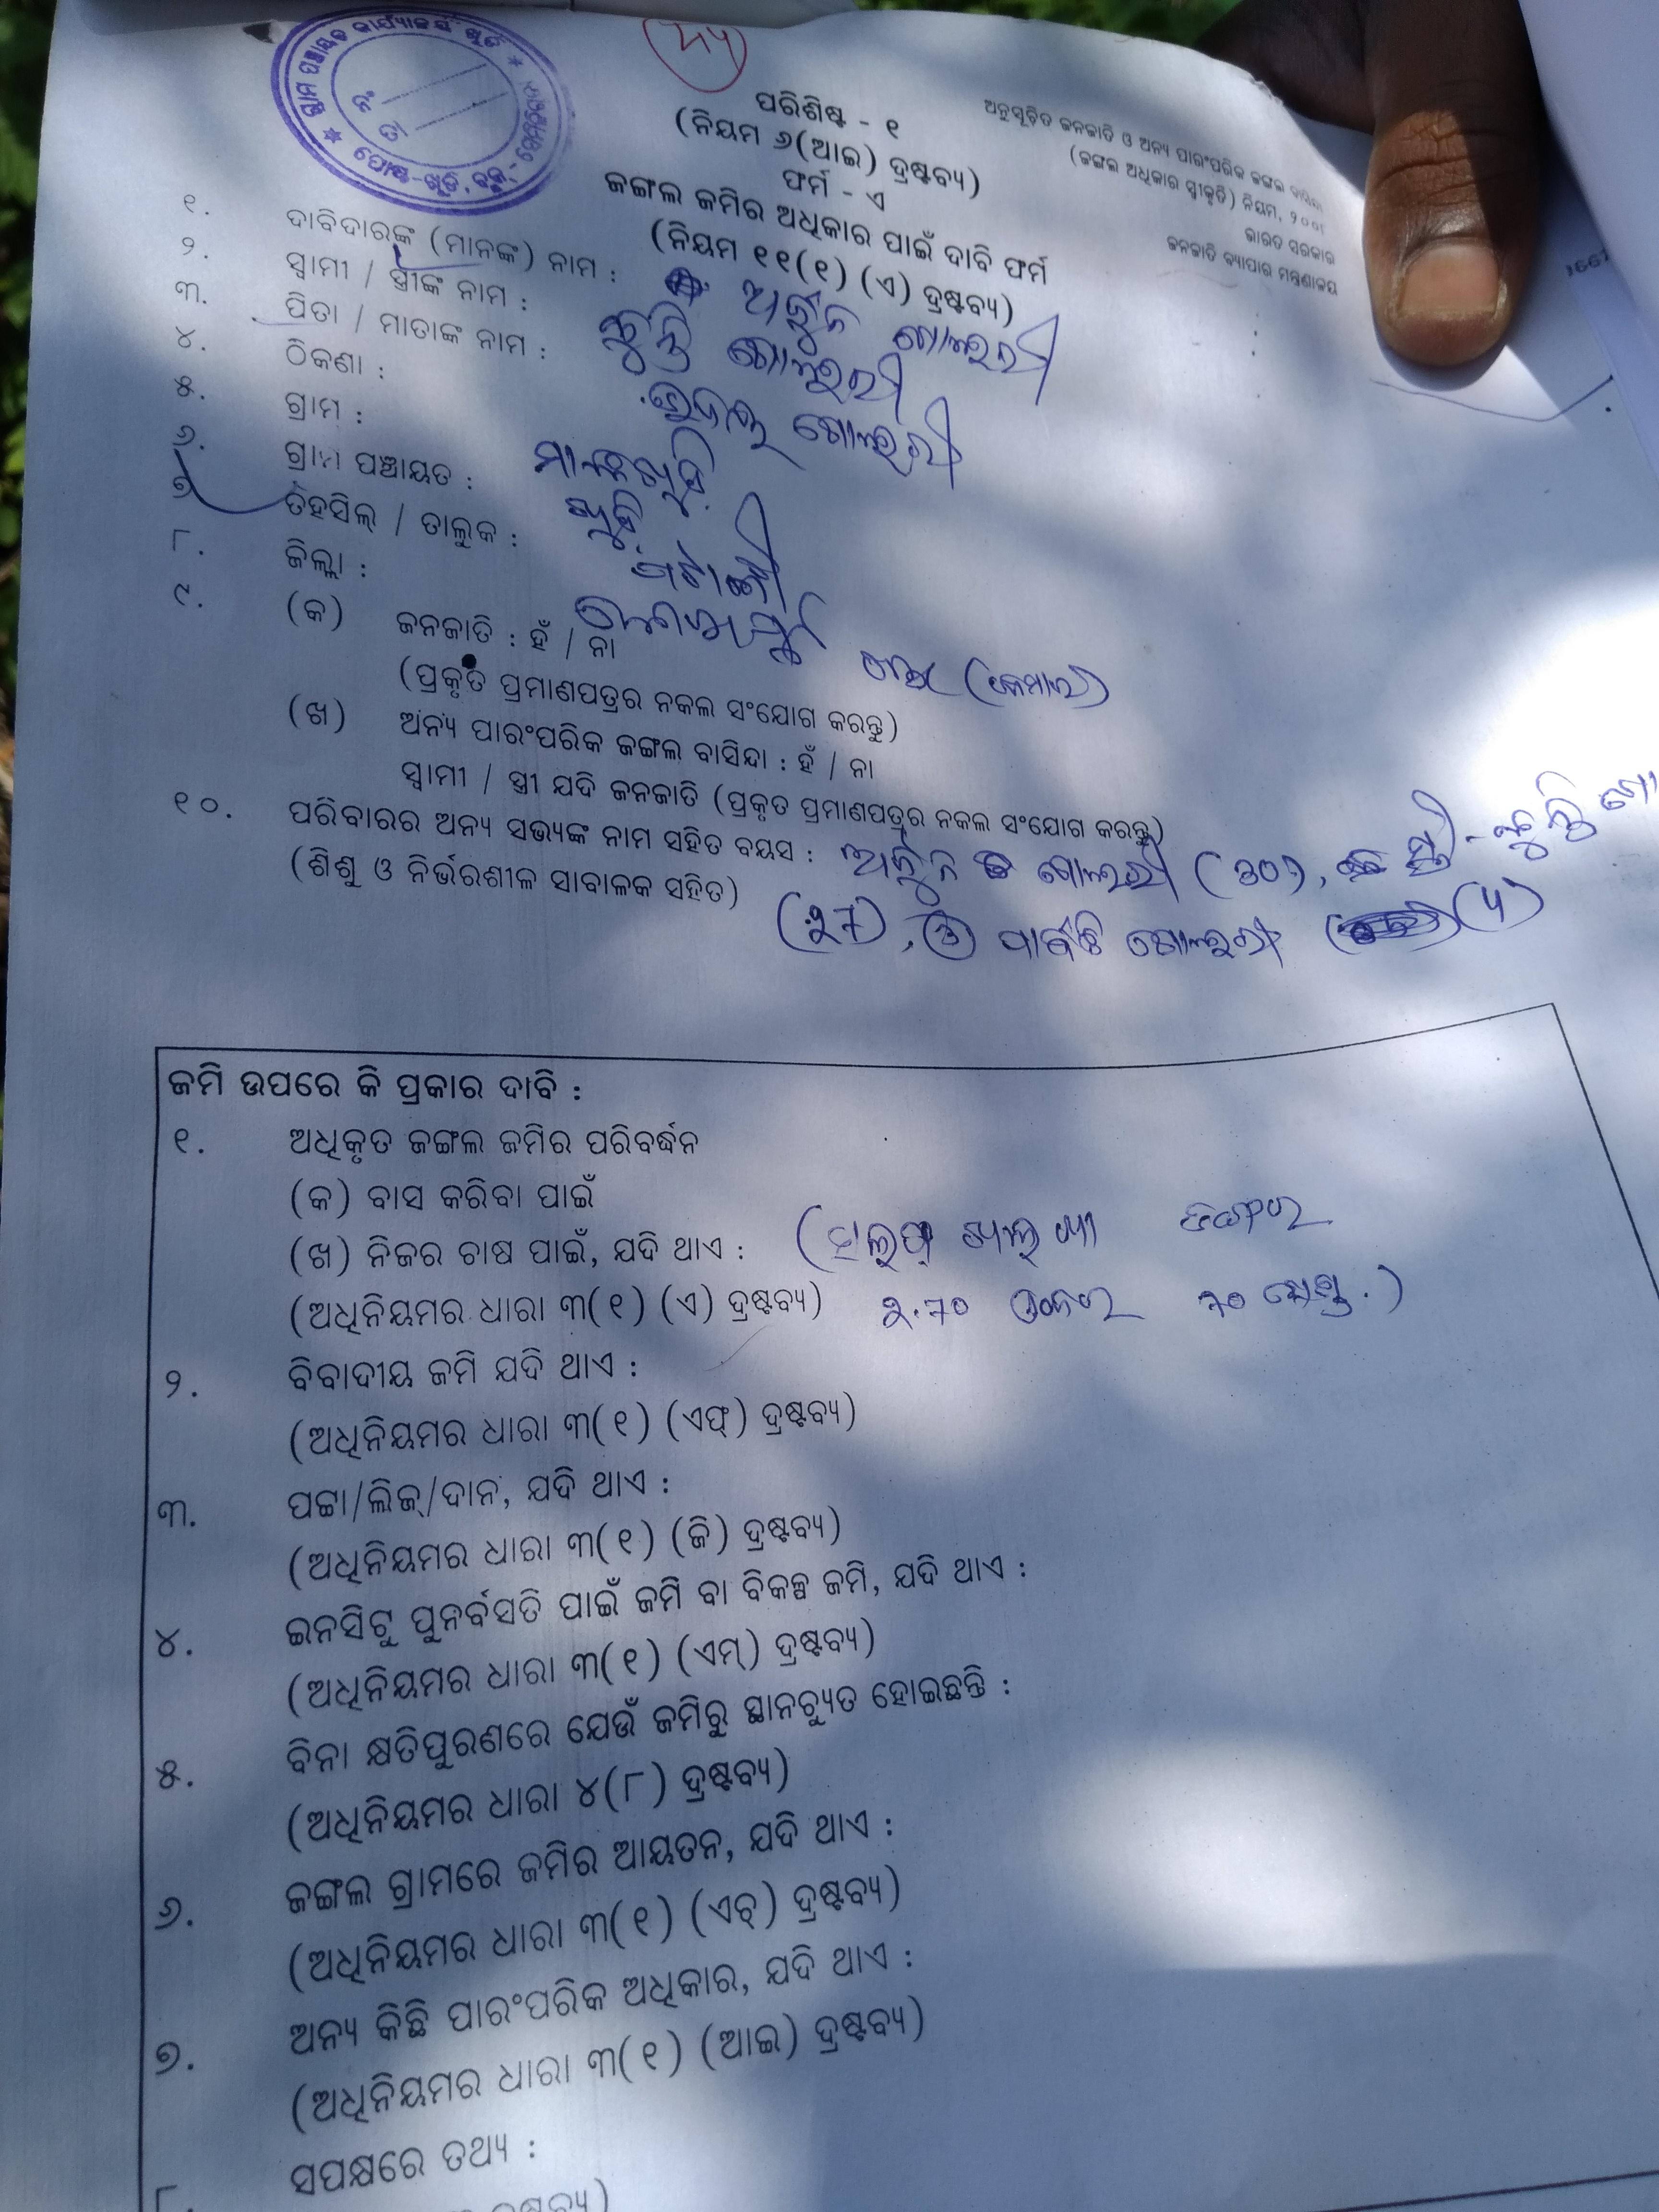 ଗ୍ରାମ ପଞ୍ଚାୟତ କାର୍ଯ୍ୟାଳୟ ଖୁଡି
ନଂ
ତା
ପୋଷ୍ଟ-ଖୁଡି, ବ୍ଲକ୍-
ଅନୁସୂଚିତ ଜନଜାତି ଓ ଅନ୍ୟ ପାରଂପରିକ ଜଙ୍ଗଲ
(ଜଙ୍ଗଲ ଅଧିକାର ସ୍ୱୀକୃତି) ନିୟମ,
ଭାରତ ସରକାର
ଜନଜାତି ବ୍ୟାପାର ମନ୍ତ୍ରଣାଳୟ
ପରିଶିଷ୍ଟ - ୧
(ନିୟମ ୬(ଆଇ) ଦ୍ରଷ୍ଟବ୍ୟ)
ଫର୍ମ - ଏ
ଜଙ୍ଗଲ ଜମିର ଅଧିକାର ପାଇଁ ଦାବି ଫର୍ମ
(ନିୟମ ୧୧(୧) (ଏ) ଦ୍ରଷ୍ଟବ୍ୟ)
୧. ଦାବିଦାରଙ୍କ (ମାନଙ୍କ) ନାମ : ଅର୍ଜୁନ ଗୋଲାରୀ
୨. ସ୍ୱାମୀ / ସ୍ତ୍ରୀଙ୍କ ନାମ : କୁନ୍ତି ଗୋଲାରୀ
୩. ପିତା / ମାତାଙ୍କ ନାମ : ଗୋଲାରୀ
୪. ଠିକଣା :
୫. ଗ୍ରାମ :
୬. ଗ୍ରାମ ପଞ୍ଚାୟତ : ଖୁଡି
୭. ତହସିଲ୍ / ତାଲୁକ : ପଟାଙ୍ଗୀ
୮. ଜିଲ୍ଲା : କୋରାପୁଟ
୯. (କ) ଜନଜାତି : ହଁ / ନା
(ପ୍ରକୃତ ପ୍ରମାଣପତ୍ରର ନକଲ ସଂଯୋଗ କରନ୍ତୁ)
(ଖ) ଅନ୍ୟ ପାରଂପରିକ ଜଙ୍ଗଲ ବାସିନ୍ଦା : ହଁ / ନା
ସ୍ୱାମୀ / ସ୍ତ୍ରୀ ଯଦି ଜନଜାତି (ପ୍ରକୃତ ପ୍ରମାଣପତ୍ରର ନକଲ ସଂଯୋଗ କରନ୍ତୁ)
୧୦. ପରିବାରର ଅନ୍ୟ ସଭ୍ୟଙ୍କ ନାମ ସହିତ ବୟସ : ଅର୍ଜୁନ ଗୋଲାରୀ (୩୦), ସ୍ତ୍ରୀ - କୁନ୍ତି
(ଶିଶୁ ଓ ନିର୍ଭରଶୀଳ ସାବାଳକ ସହିତ) (୨୭), ୩ ପାର୍ବତି ଗୋଲାରୀ (୫)
ଜମି ଉପରେ କି ପ୍ରକାର ଦାବି :
୧. ଅଧିକୃତ ଜଙ୍ଗଲ ଜମିର ପରିବର୍ଦ୍ଧନ
(କ) ବାସ କରିବା ପାଇଁ
(ଖ) ନିଜର ଚାଷ ପାଇଁ, ଯଦି ଥାଏ :
(ଅଧିନିୟମର ଧାରା ୩(୧) (ଏ) ଦ୍ରଷ୍ଟବ୍ୟ) ୨.୭୦
୨. ବିବାଦୀୟ ଜମି ଯଦି ଥାଏ :
(ଅଧିନିୟମର ଧାରା ୩(୧) (ଏଫ୍) ଦ୍ରଷ୍ଟବ୍ୟ)
୩. ପଟ୍ଟା/ଲିଜ୍/ଦାନ, ଯଦି ଥାଏ :
(ଅଧିନିୟମର ଧାରା ୩(୧) (ଜି) ଦ୍ରଷ୍ଟବ୍ୟ)
୪. ଇନସିଟୁ ପୁନର୍ବସତି ପାଇଁ ଜମି ବା ବିକଳ୍ପ ଜମି, ଯଦି ଥାଏ :
(ଅଧିନିୟମର ଧାରା ୩(୧) (ଏମ୍) ଦ୍ରଷ୍ଟବ୍ୟ)
୫. ବିନା କ୍ଷତିପୁରଣରେ ଯେଉଁ ଜମିରୁ ସ୍ଥାନଚ୍ୟୁତ ହୋଇଛନ୍ତି :
(ଅଧିନିୟମର ଧାରା ୪(୮) ଦ୍ରଷ୍ଟବ୍ୟ)
୬. ଜଙ୍ଗଲ ଗ୍ରାମରେ ଜମିର ଆୟତନ, ଯଦି ଥାଏ :
(ଅଧିନିୟମର ଧାରା ୩(୧) (ଏଚ୍) ଦ୍ରଷ୍ଟବ୍ୟ)
୭. ଅନ୍ୟ କିଛି ପାରଂପରିକ ଅଧିକାର, ଯଦି ଥାଏ :
(ଅଧିନିୟମର ଧାରା ୩(୧) (ଆଇ) ଦ୍ରଷ୍ଟବ୍ୟ)
୮. ସପକ୍ଷରେ ତଥ୍ୟ :
ଦ୍ରଷ୍ଟବ୍ୟ)